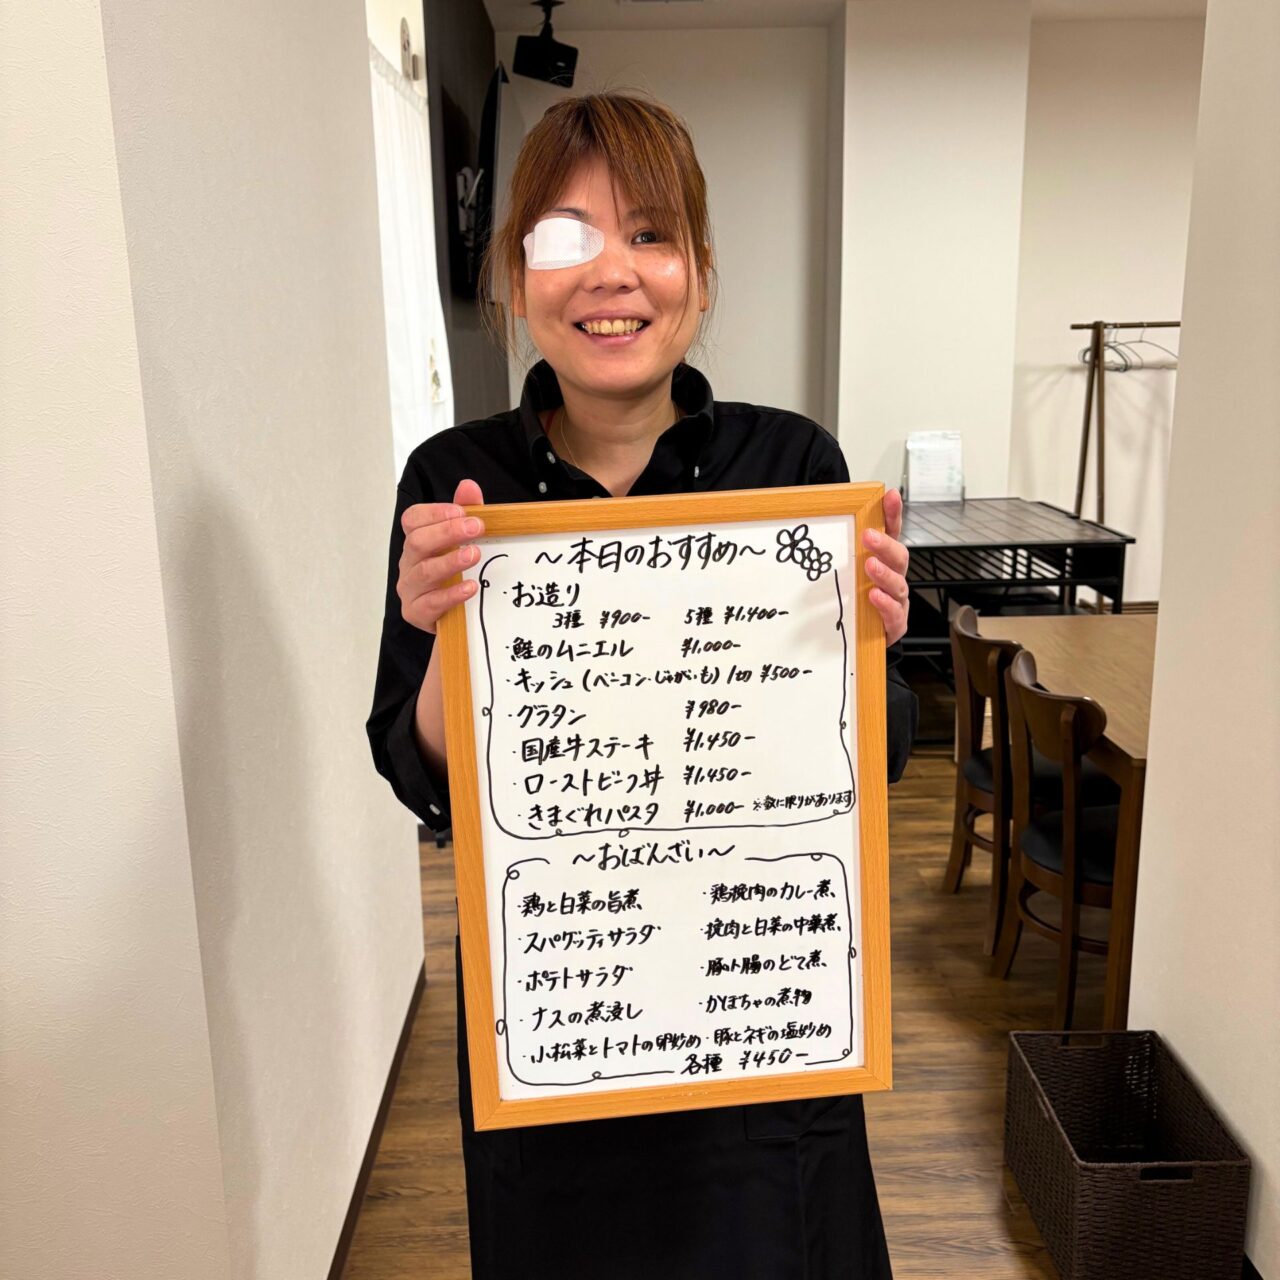 ～本日のおすすめ～
・お造り
3種 ¥900- 5種 ¥1,400-
・鮭のムニエル ¥1,000-
・キッシュ(ベーコン・じゃがいも) 1切 ¥500-
・グラタン ¥980-
・国産牛ステーキ ¥1,450-
・ローストビーフ丼 ¥1,450-
・きまぐれパスタ ¥1,000- ※数に限りがあります
～おばんざい～
・鶏と白菜の旨煮 ・鶏挽肉のカレー煮
・スパゲッティサラダ ・挽肉と白菜の中華煮
・ポテトサラダ ・豚小腸のどて煮
・ナスの煮浸し ・かぼちゃの煮物
・小松菜とトマトの卵炒め ・豚とネギの塩炒め
各種 ¥450-